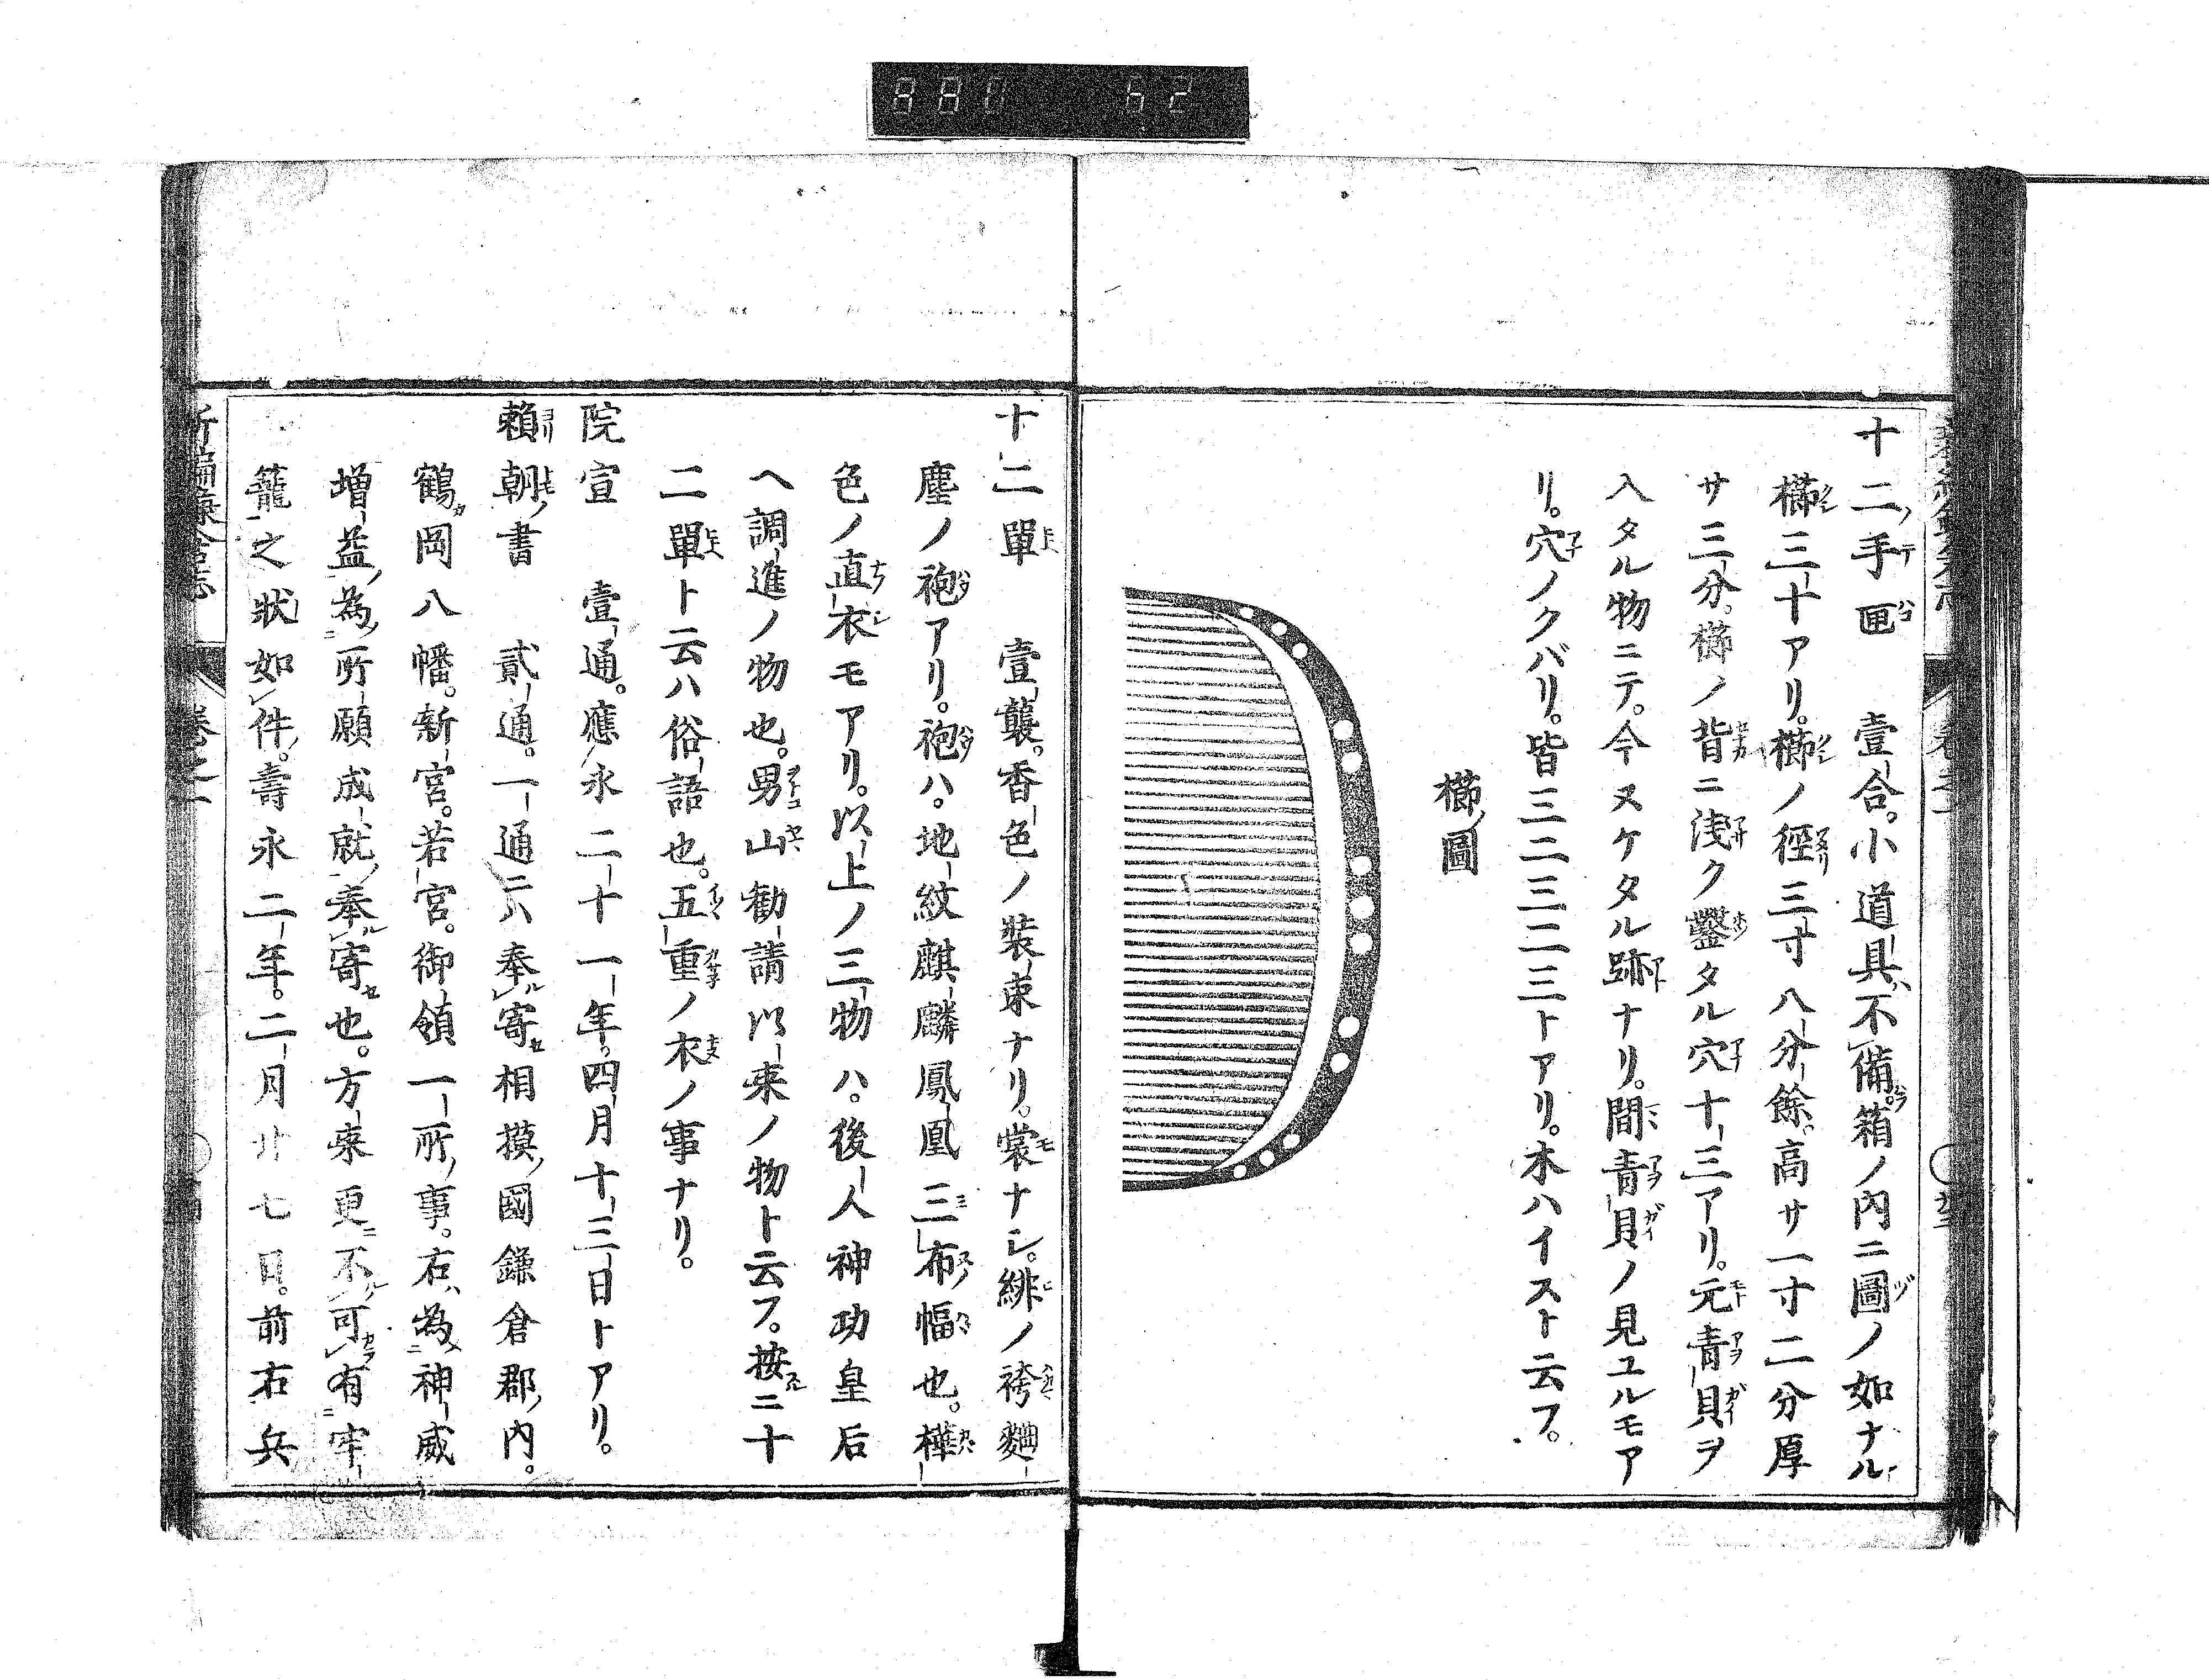 十二手匣 壹合。小道具不備。箱ノ内ニ圖ノ如ナル
櫛三十アリ。櫛ノ徑三寸八分餘。高サ一寸二分厚
サ三分。櫛ノ背ニ淺ク鑿タル穴十三アリ。元青貝ヲ
入タル物ニテ。今ヌケタル跡ナリ。間青貝ノ見ユルモア
リ。穴ノクバリ。皆三二三二三トアリ。木ハイスト云フ。
櫛圖
十二單 壹襲。香色ノ裝束ナリ。裳ナシ。緋ノ袴麹
塵ノ袍アリ。袍ハ。地紋麒麟鳳凰三布幅也。樺
色ノ直衣モアリ。以上ノ三物ハ。後人神功皇后
ヘ調進ノ物也。男山勸請以來ノ物ト云フ。按ニ十
二單ト云ハ俗語也。五重ノ衣ノ事ナリ。
院宣 壹通。應永二十一年。四月十三日トアリ。
賴朝書 貳通。一通ニハ奉寄相摸國鎌倉郡内。
鶴岡八幡。新宮。若宮。御領一所事。右為神威
増益。為所願成就。奉寄也。方來更不可有牢
籠之狀如件。壽永二年。二月廿七日。前右兵